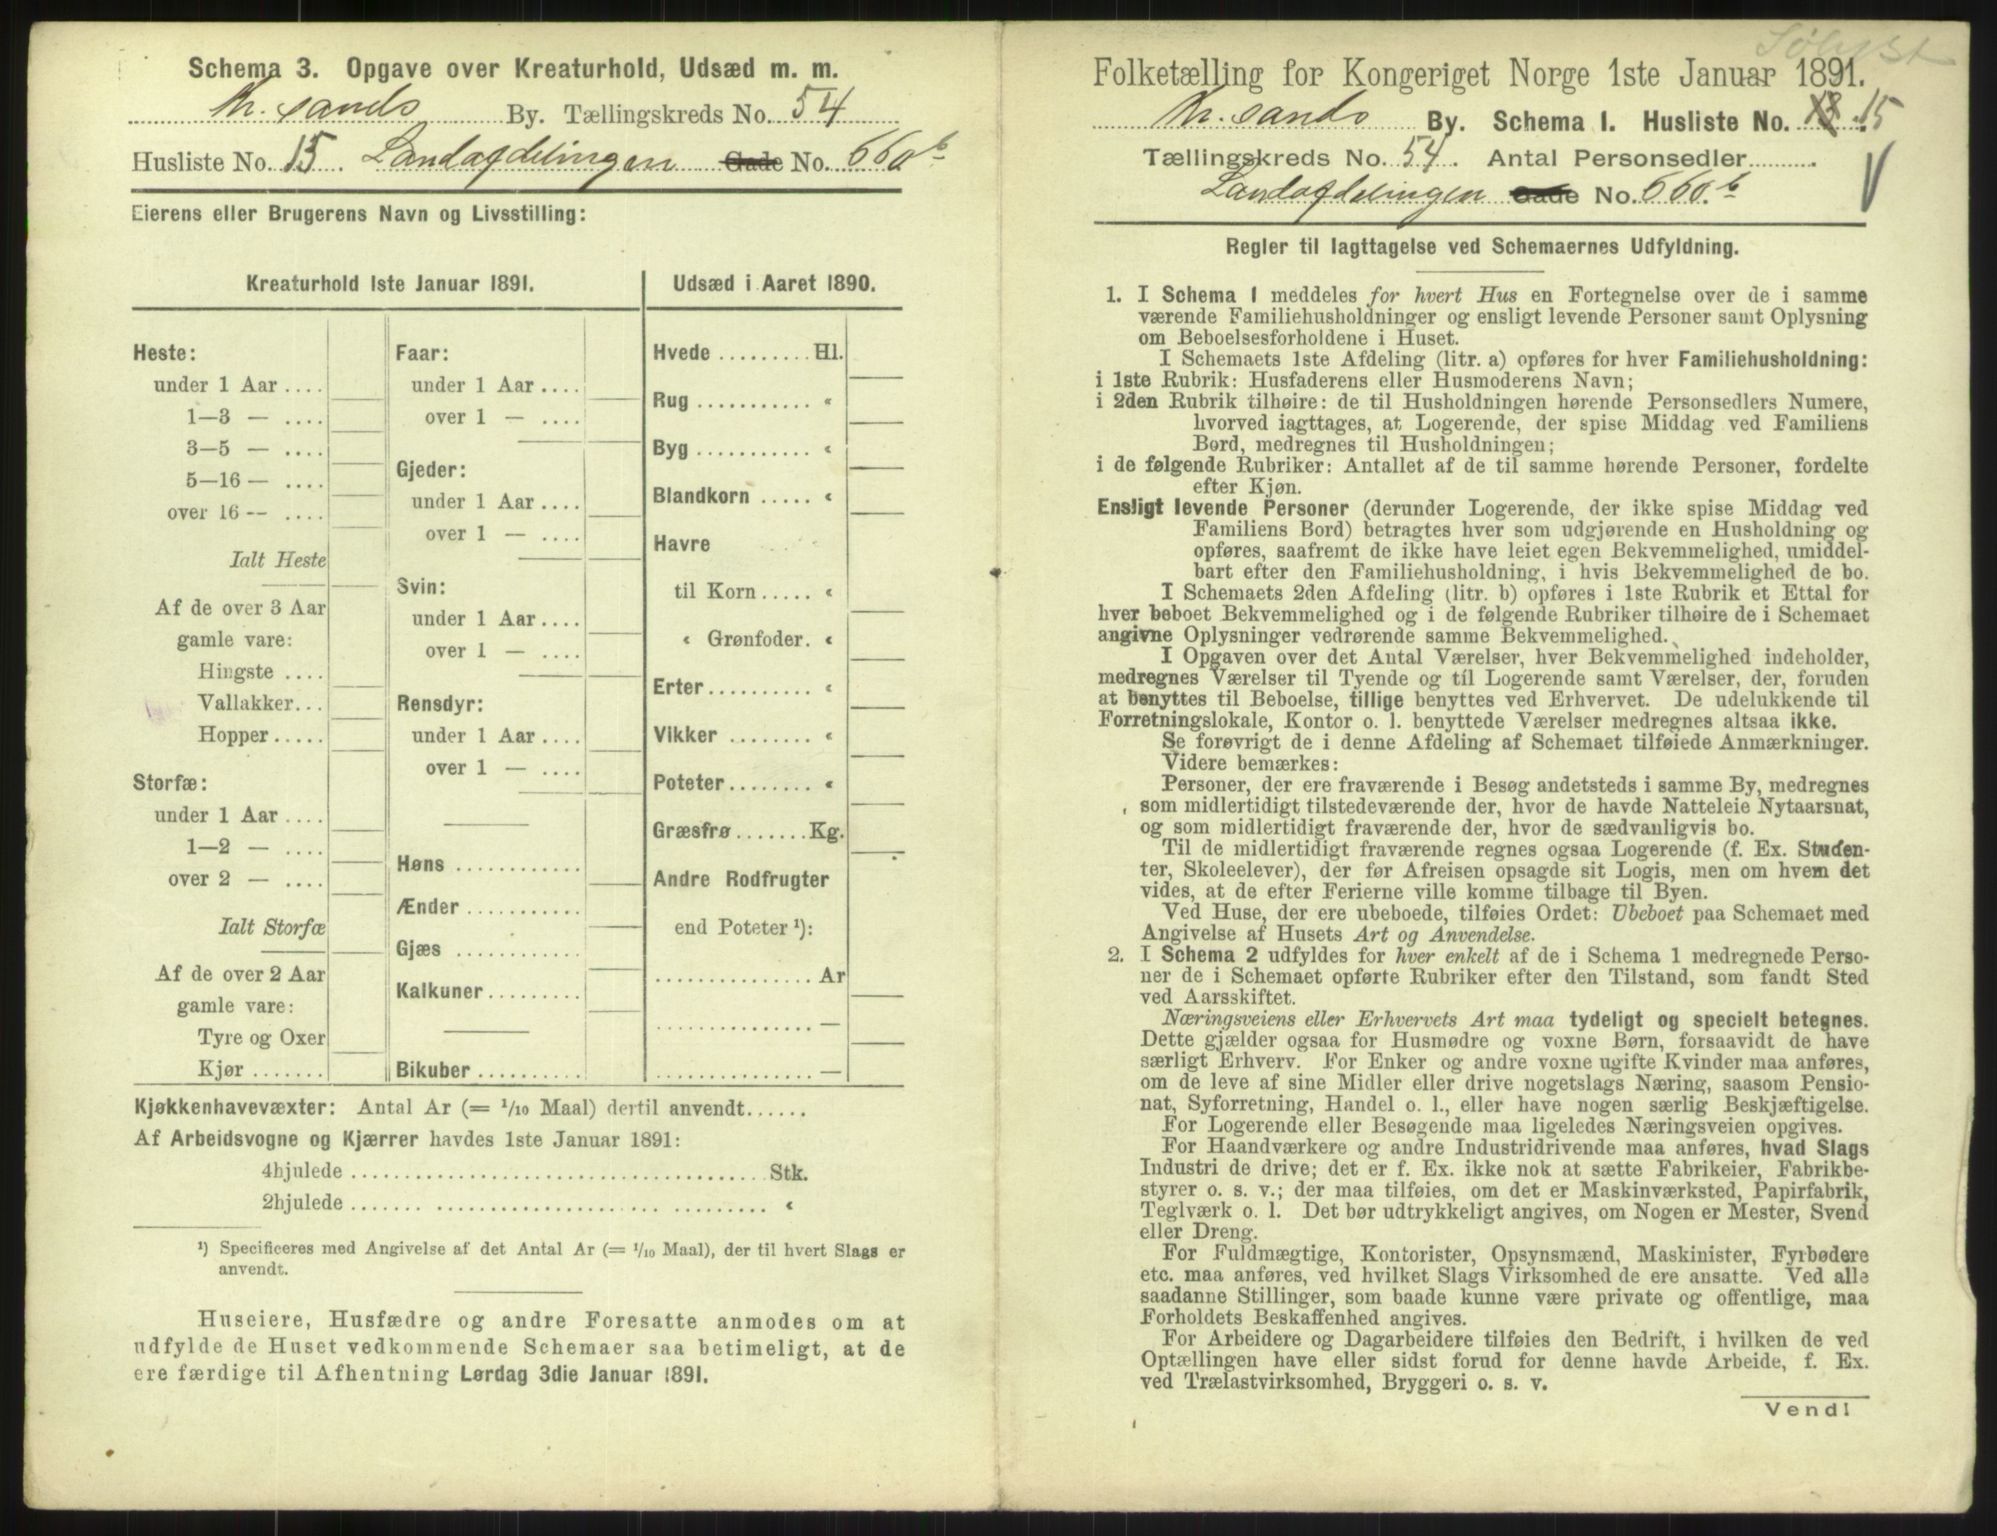 Schema 3. Opgave over Kreaturhold, Udsæd m. m.
Kr. sands By. Tællingskreds No. 54
Husliste No. 15. Landafdelingen Gade No. 660 b
Eierens eller Brugerens Navn og Livsstilling:
Kreaturhold 1ste Januar 1891.
Heste:
under 1 Aar ....
1—3 — ....
3—5 — ....
5—16 — ....
over 16 -- ....
Ialt Heste
Af de over 3 Aar
gamle vare:
Hingste ....
Vallakker...
Hopper.....
Storfæ:
under 1 Aar ....
1—2 — ....
over 2 — ....
Ialt Storfæ
Af de over 2 Aar
gamle vare:
Tyre og Oxer
Kjør .......
Faar:
under 1 Aar ....
over 1 — ....
Gjeder:
under 1 Aar ....
over 1 — ....
Svin:
under 1 Aar ....
over 1 — ....
Rensdyr:
under 1 Aar ....
over 1 — ....
Høns ............
Ænder ...........
Gjæs ............
Kalkuner.........
Bikuber ..........
Udsæd i Aaret 1890.
Hvede ......... Hl.
Rug ........... «
Byg ........... «
Blandkorn ..... «
Havre
til Korn ..... «
« Grønfoder. «
Erter.......... «
Vikker ........ «
Poteter........ «
Græsfrø ....... Kg.
Andre Rodfrugter
end Poteter ¹):
............... Ar
............... —
............... —
Kjøkkenhavevæxter: Antal Ar (= 1/10 Maal) dertil anvendt......
Af Arbeidsvogne og Kjærrer havdes 1ste Januar 1891:
4hjulede ...................................... Stk.
2hjulede ...................................... «
¹) Specificeres med Angivelse af det Antal Ar (= 1/10 Maal), der til hvert Slags er
anvendt.
Huseiere, Husfædre og andre Foresatte anmodes om at
udfylde de Huset vedkommende Schemaer saa betimeligt, at de
ere færdige til Afhentning Lørdag 3die Januar 1891.
Folketælling for Kongeriget Norge 1ste Januar 1891.
Kr. sands By. Schema 1. Husliste No. 13. 15
Tællingskreds No. 54. Antal Personsedler .........
Landafdelingen Gade No. 660. b
Regler til Iagttagelse ved Schemaernes Udfyldning.
1. I Schema 1 meddeles for hvert Hus en Fortegnelse over de i samme
værende Familiehusholdninger og ensligt levende Personer samt Oplysning
om Beboelsesforholdene i Huset.
I Schemaets 1ste Afdeling (litr. a) opføres for hver Familiehusholdning:
i 1ste Rubrik: Husfaderens eller Husmoderens Navn;
i 2den Rubrik tilhøire: de til Husholdningen hørende Personsedlers Numere,
hvorved iagttages, at Logerende, der spise Middag ved Familiens
Bord, medregnes til Husholdningen;
i de følgende Rubriker: Antallet af de til samme hørende Personer, fordelte
efter Kjøn.
Ensligt levende Personer (derunder Logerende, der ikke spise Middag ved
Familiens Bord) betragtes hver som udgjørende en Husholdning og
opføres, saafremt de ikke have leiet egen Bekvemmelighed, umiddel-
bart efter den Familiehusholdning, i hvis Bekvemmelighed de bo.
I Schemaets 2den Afdeling (litr. b) opføres i 1ste Rubrik et Ettal for
hver beboet Bekvemmelighed og i de følgende Rubriker tilhøire de i Schemaet
angivne Oplysninger vedrørende samme Bekvemmelighed.
I Opgaven over det Antal Værelser, hver Bekvemmelighed indeholder,
medregnes Værelser til Tyende og til Logerende samt Værelser, der, foruden
at benyttes til Beboelse, tillige benyttes ved Erhvervet. De udelukkende til
Forretningslokale, Kontor o. l. benyttede Værelser medregnes altsaa ikke.
Se forøvrigt de i denne Afdeling af Schemaet tilføiede Anmærkninger.
Videre bemærkes:
Personer, der ere fraværende i Besøg andetsteds i samme By, medregnes
som midlertidigt tilstedeværende der, hvor de havde Natteleie Nytaarsnat,
og som midlertidigt fraværende der, hvor de sædvanligvis bo.
Til de midlertidigt fraværende regnes ogsaa Logerende (f. Ex. Studen-
ter, Skoleelever), der før Afreisen opsagde sit Logis, men om hvem det
vides, at de efter Ferierne ville komme tilbage til Byen.
Ved Huse, der ere ubeboede, tilføies Ordet: Ubeboet paa Schemaet med
Angivelse af Husets Art og Anvendelse.
2. I Schema 2 udfyldes for hver enkelt af de i Schema 1 medregnede Perso-
ner de i Schemaet opførte Rubriker efter den Tilstand, som fandt Sted
ved Aarsskiftet.
Næringsveiens eller Erhvervets Art maa tydeligt og specielt betegnes.
Dette gjælder ogsaa for Husmødre og voxne Børn, forsaavidt de have
særligt Erhverv. For Enker og andre voxne ugifte Kvinder maa anføres,
om de leve af sine Midler eller drive nogetslags Næring, saasom Pensio-
nat, Syforretning, Handel o. l., eller have nogen særlig Beskjæftigelse.
For Logerende eller Besøgende maa ligeledes Næringsveien opgives.
For Haandværkere og andre Industridrivende maa anføres, hvad Slags
Industri de drive; det er f. Ex. ikke nok at sætte Fabrikeier, Fabrikbe-
styrer o. s. v.; der maa tilføies, om det er Maskinværksted, Papirfabrik,
Teglværk o. l. Det bør udtrykkeligt angives, om Nogen er Mester, Svend
eller Dreng.
For Fuldmægtige, Kontorister, Opsynsmænd, Maskinister, Fyrbødere
etc. maa anføres, ved hvilket Slags Virksomhed de ere ansatte. Ved alle
saadanne Stillinger, som baade kunne være private og offentlige, maa
Forholdets Beskaffenhed angives.
For Arbeidere og Dagarbeidere tilføies den Bedrift, i hvilken de ved
Optællingen have eller sidst forud for denne havde Arbeide, f. Ex.
ved Trælastvirksomhed, Bryggeri o. s. v.
Vend!